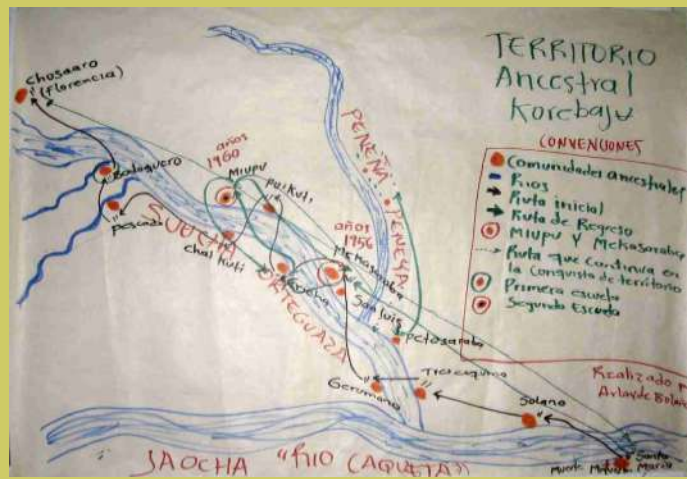 TERRITORIO
Ancestral
Korebaju
CONVENCIONES
Comunidades ancestrales
Rios
Ruta inicial
Ruta de Regreso
MIUPU Y MEKASARABA
Ruta que continua en
la Conquista de territorio
Primera escuela
Segunda Escuela
Realizado
chosaaro
(florencia)
Bodoquero
Pescado
años
1960
MIUPU
puikuti
chaikuti
años
1956
Mekasaraba
San luis
PEÑEÑA
PENEYA
SUUCHA
ORTEGUAZA
Germano
Tres esquinas
Solano
Santa
Maria
JAOCHA "RIO CAQUETA"